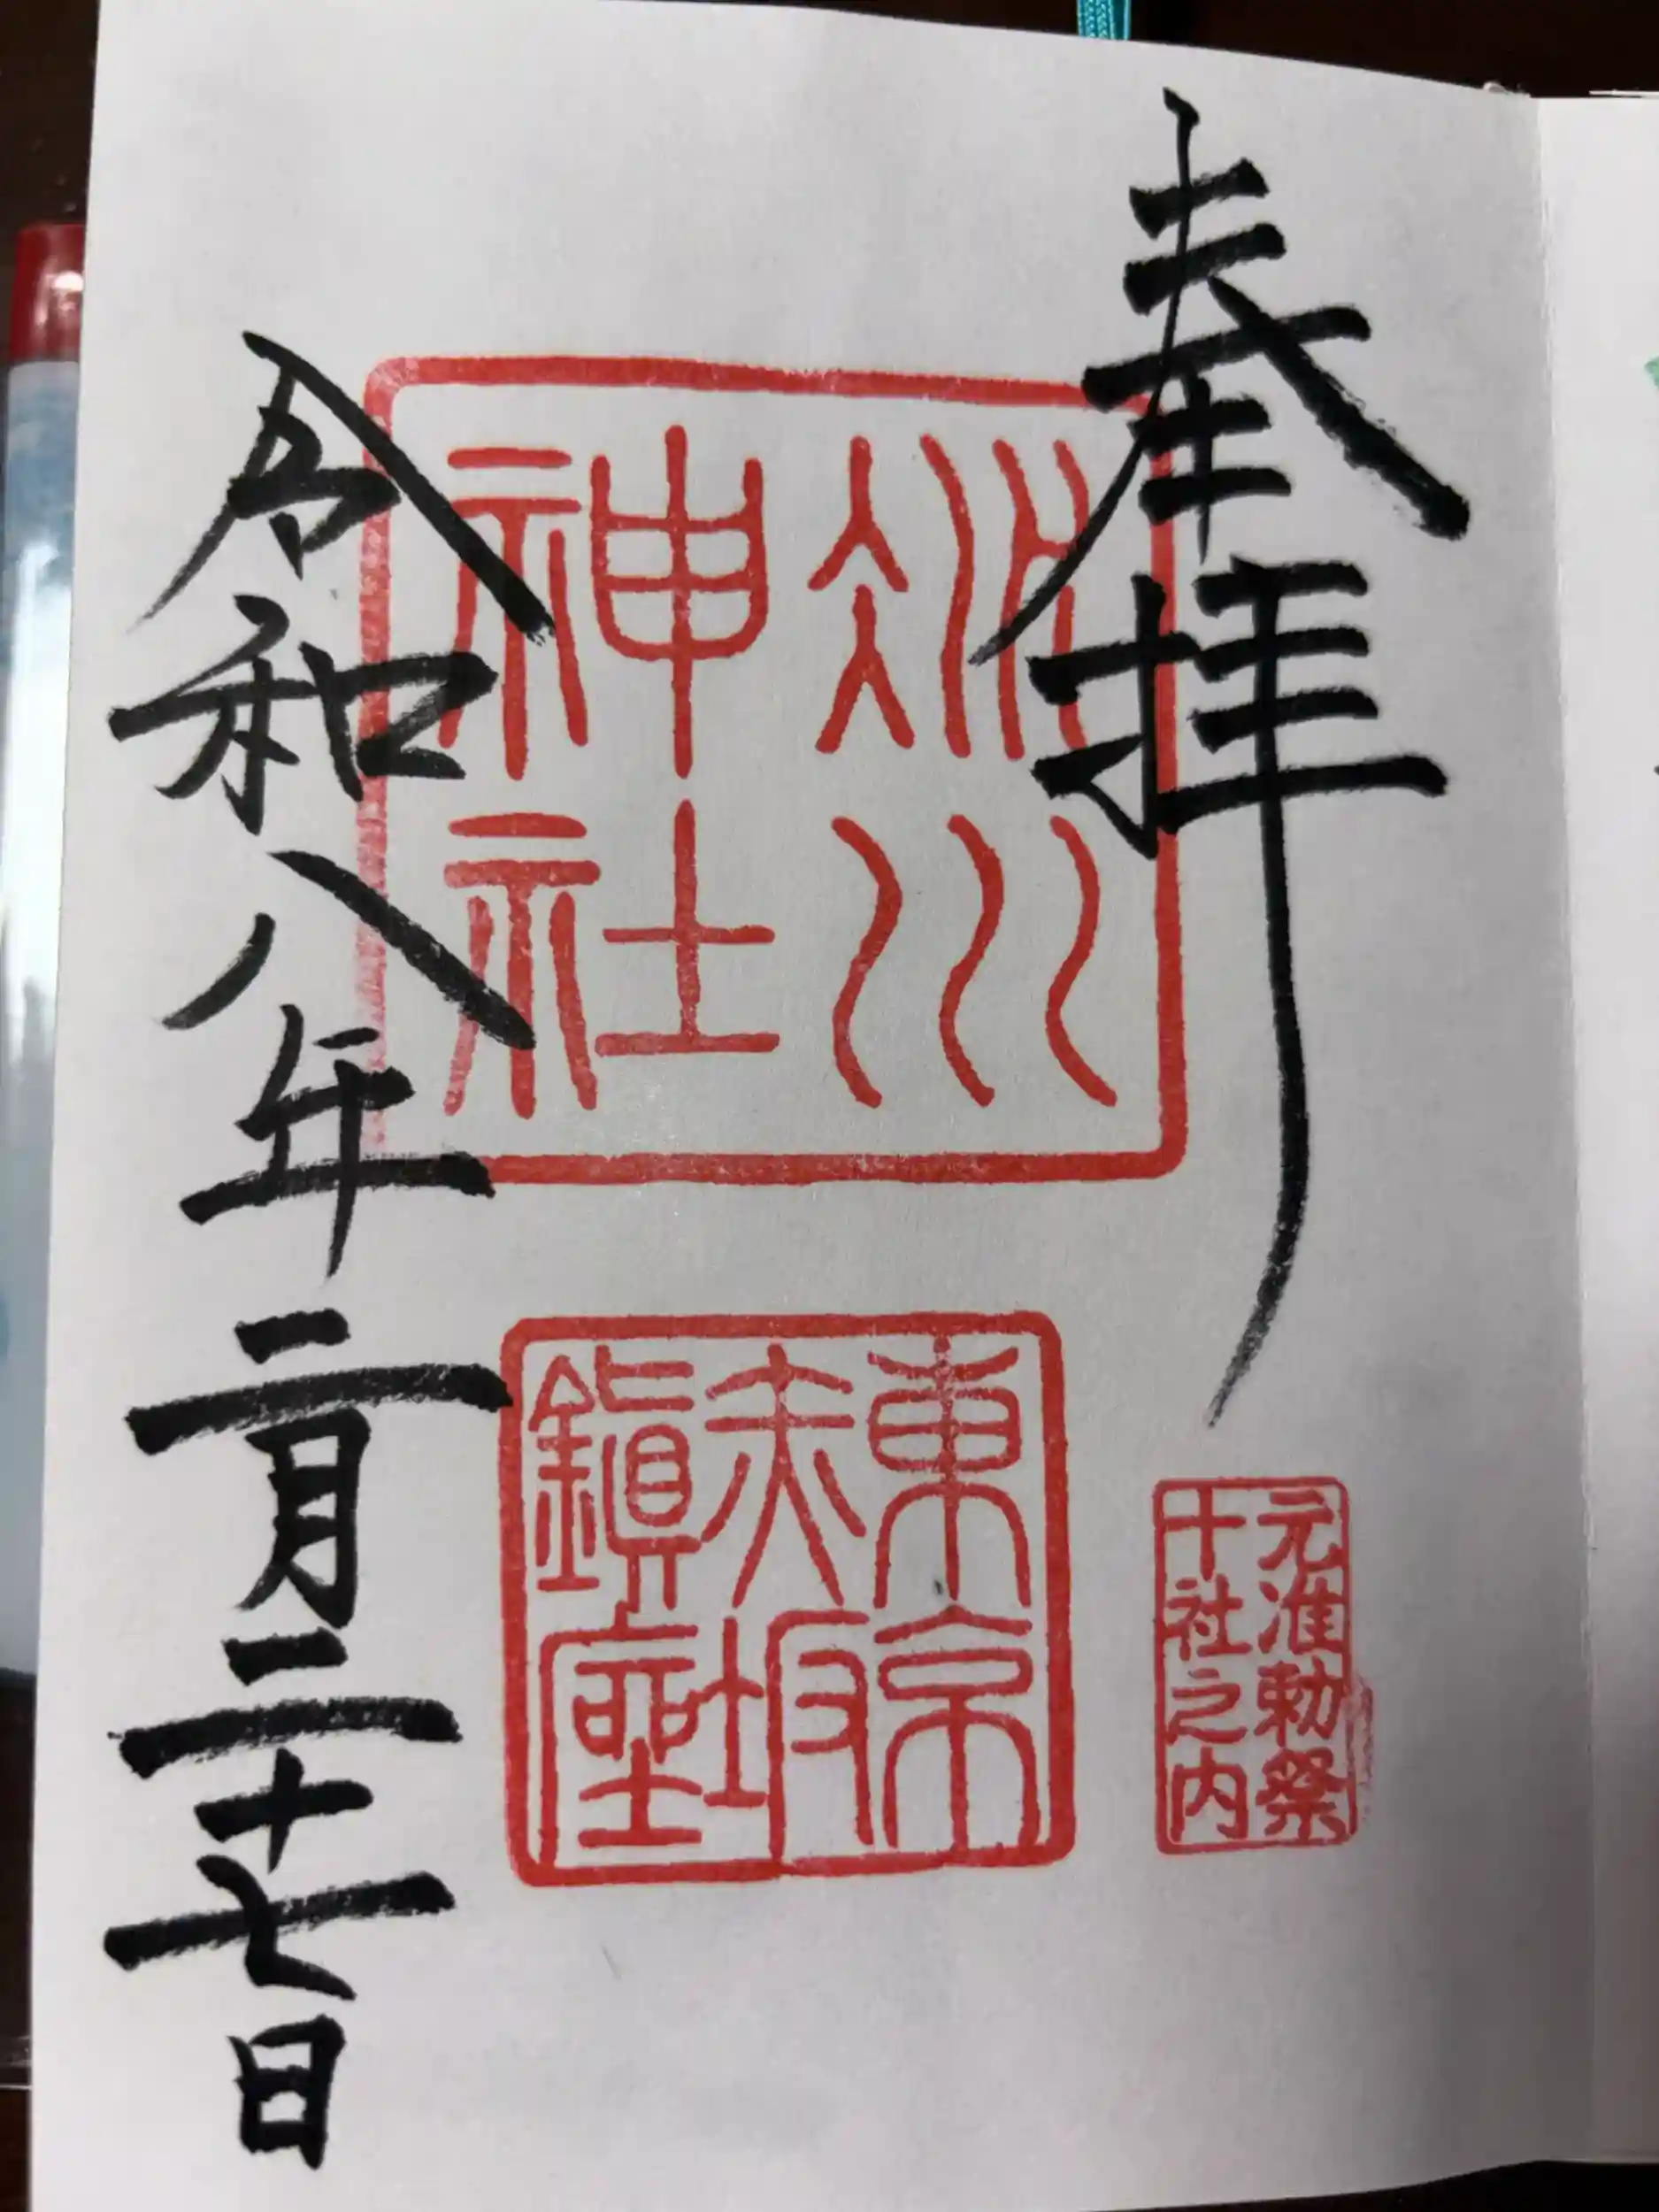 奉拝
元准勅祭
十社之内
氷川
神社
東京
赤坂
鎮座
令和八年二月二十七日